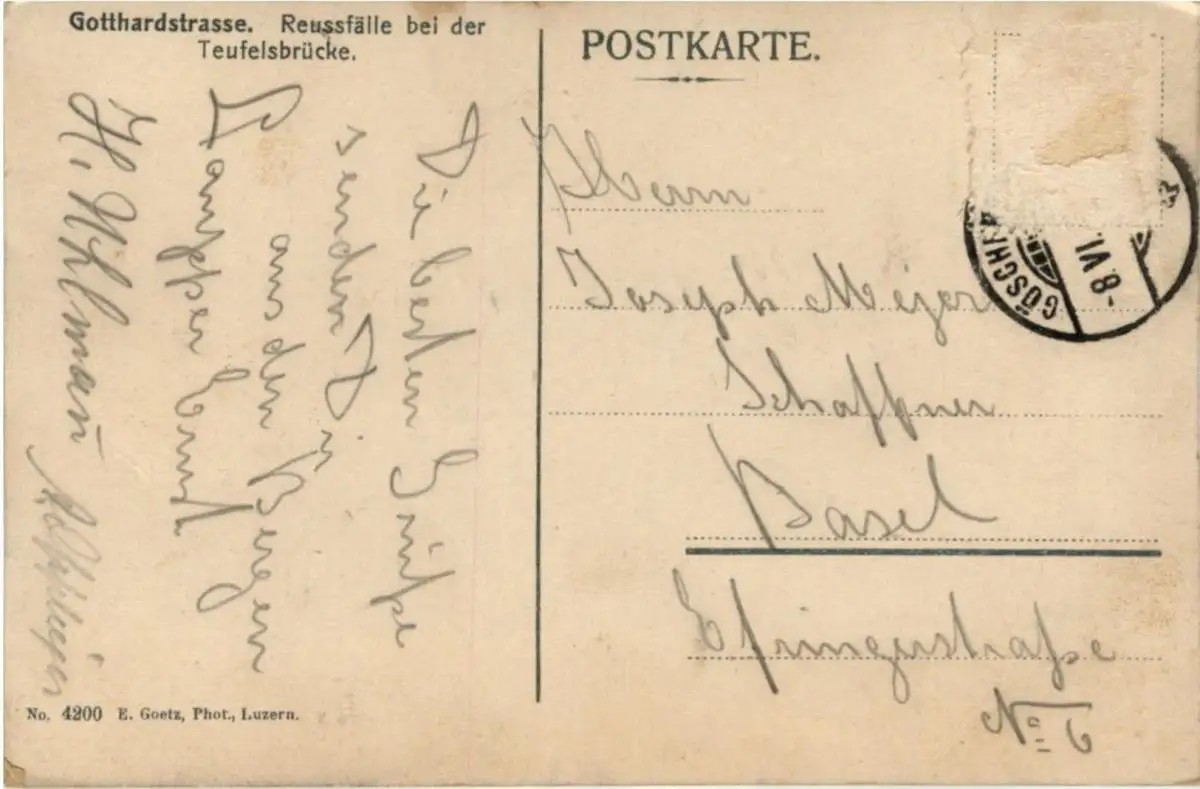 Gotthardstrasse. Reussfälle bei der
Teufelsbrücke.
Die besten Grüße
senden Dir
aus den Bergen
Ernst
H. Uhlmann
No. 4200 E. Goetz, Phot., Luzern.
POSTKARTE.
GÖSCHE
-8. VI.
Herrn
Joseph Meyer
Schaffner
Basel
Efringerstraße
No 6